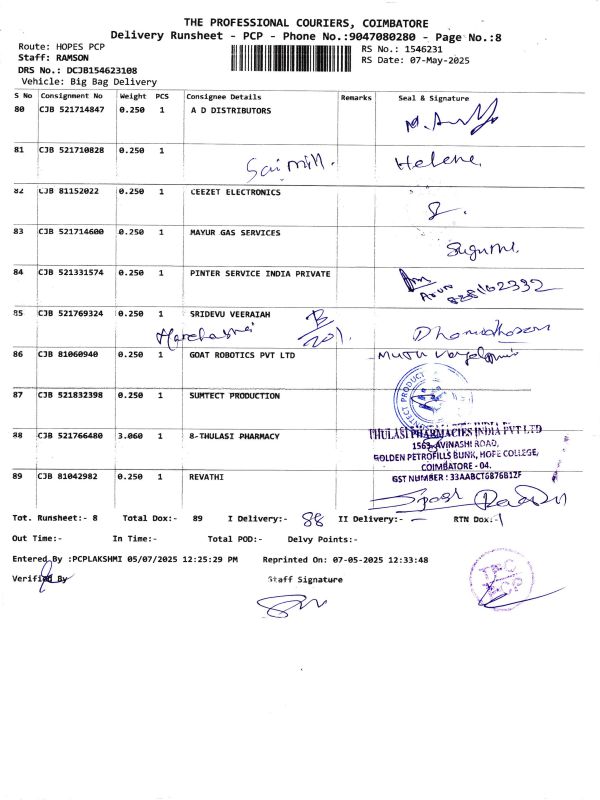 THE PROFESSIONAL COURIERS, COIMBATORE
Delivery Runsheet - PCP - Phone No.:9047080280 - Page No.:8
Route: HOPES PCP
RS No.: 1546231
Staff: RAMSON
RS Date: 07-May-2025
DRS No.: DCJB154623108
Vehicle: Big Bag Delivery
S No Consignment No Weight PCS Consignee Details Remarks Seal & Signature
80 CJB 521714847 0.250 1 A D DISTRIBUTORS
81 CJB 521710828 0.250 1 Sai Mill. Helene
82 CJB 81152022 0.250 1 CEEZET ELECTRONICS
83 CJB 521714600 0.250 1 MAYUR GAS SERVICES Suguthi
84 CJB 521331574 0.250 1 PINTER SERVICE INDIA PRIVATE
Arun
85 CJB 521769324 0.250 1 SRIDEVU VEERAIAH
86 CJB 81060940 0.250 1 GOAT ROBOTICS PVT LTD
87 CJB 521832398 0.250 1 SUMTECT PRODUCTION
88 CJB 521766480 3.060 1 8-THULASI PHARMACY THULASI PHARMACIES INDIA PVT LTD
1563, AVINASHI ROAD,
GOLDEN PETROFILLS BUNK, HOPE COLLEGE,
COIMBATORE - 04.
GST NUMBER : 33AABCT6876B1ZF
89 CJB 81042982 0.250 1 REVATHI
Tot. Runsheet:- 8 Total Dox:- 89 I Delivery:- 88 II Delivery:- — RTN Dox:-1
Out Time:- In Time:- Total POD:- Delvy Points:-
Entered By :PCPLAKSHMI 05/07/2025 12:25:29 PM Reprinted On: 07-05-2025 12:33:48
Verified By Staff Signature